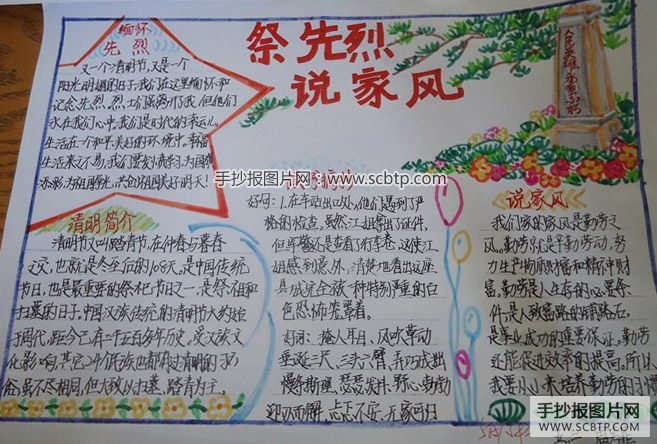 祭先烈
说家风
人民英雄永垂不朽
缅怀
先烈
又一个清明节,又是一个
阳光明媚的日子,我们在这里缅怀和
记念先烈,烈士们虽离开了我,但他们
永在我们心中,我们是时代的幸运儿。
生活在一个和平美好的环境中,幸福
生活来之不易,我们要
添彩,为祖国争光,共创祖国美好的明天!
清明简介
清明节又叫踏青节,在仲春与暮春
之交,也就是冬至后的108天。是中国传统
节日,也是最重要的祭祀节日之一,是祭祖和
扫墓的日子。中国汉族传统的清明节大约始
于周代,距今已有二千五百多年历史。受汉族文
化影响,其它24个民族也都有过清明的习
俗,虽不尽相同,但大致以扫墓、踏青为主。
手抄报图片网
www.scbtp.com
好句:1.在车站出口处,他们遇到了严
格的检查。虽然江姐拿出了证件,
但军警还是查看了行李卷。这使江
姐感到意外,清楚地看出这座
县城完全被一种特别严重的白
色恐怖笼罩着。
好词:掩人耳目、风吹草动
垂涎三尺、三头六臂、弄巧成拙
慢条斯理、
迎刃而解、忐忑不安、无家可归
说家风
我们家的家风是勤劳之
风。勤劳就是辛勤劳动,努
力生产物质财富和精神财
富。勤劳是人生存的必要条
件,是人致富路的明路石。
是事业成功的重要保证,勤劳
还能促进效率的提高。所以
我要从小来培养勤劳的习惯
手抄报图片网
WWW.SCBTP.COM